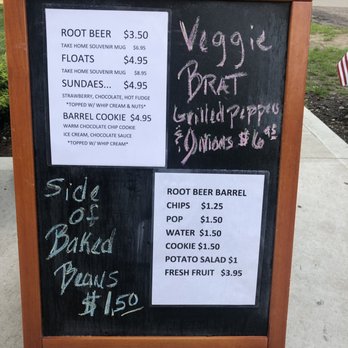 ROOT BEER $3.50
TAKE HOME SOUVENIR MUG $6.95
FLOATS $4.95
TAKE HOME SOUVENIR MUG $8.95
SUNDAES... $4.95
STRAWBERRY, CHOCOLATE, HOT FUDGE
*TOPPED W/ WHIP CREAM & NUTS*
BARREL COOKIE $4.95
WARM CHOCOLATE CHIP COOKIE
ICE CREAM, CHOCOLATE SAUCE
*TOPPED W/ WHIP CREAM*
Veggie
BRAT
Grilled Peppers
& Onions $6.95
Side
of
Baked
Beans
$1.50
ROOT BEER BARREL
CHIPS $1.25
POP $1.50
WATER $1.50
COOKIE $1.50
POTATO SALAD $1
FRESH FRUIT $3.95